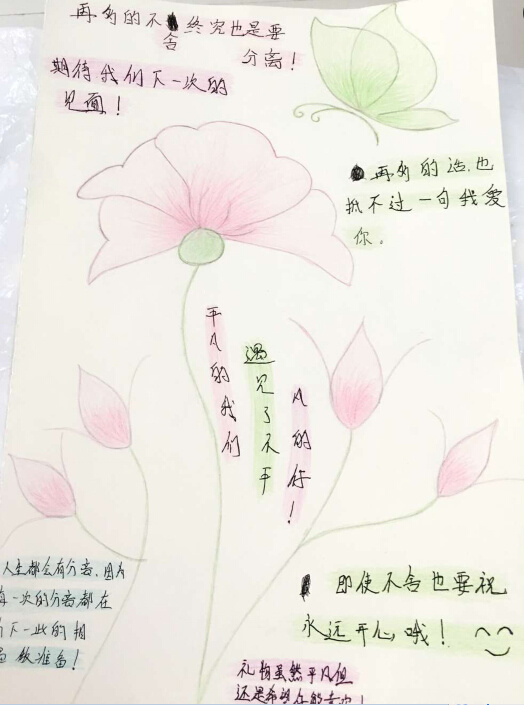 再多的不舍终究也是要
分离！
期待我们下一次的
见面！
再多的话,也
抵不过一句我爱
你。
平凡的我们
遇见了不平
凡的你！
人生都会有分离,因为
每一次的分离都在
下一次的相
做准备！
即使不舍也要祝
永远开心哦！
礼物虽然平凡但
还是希望